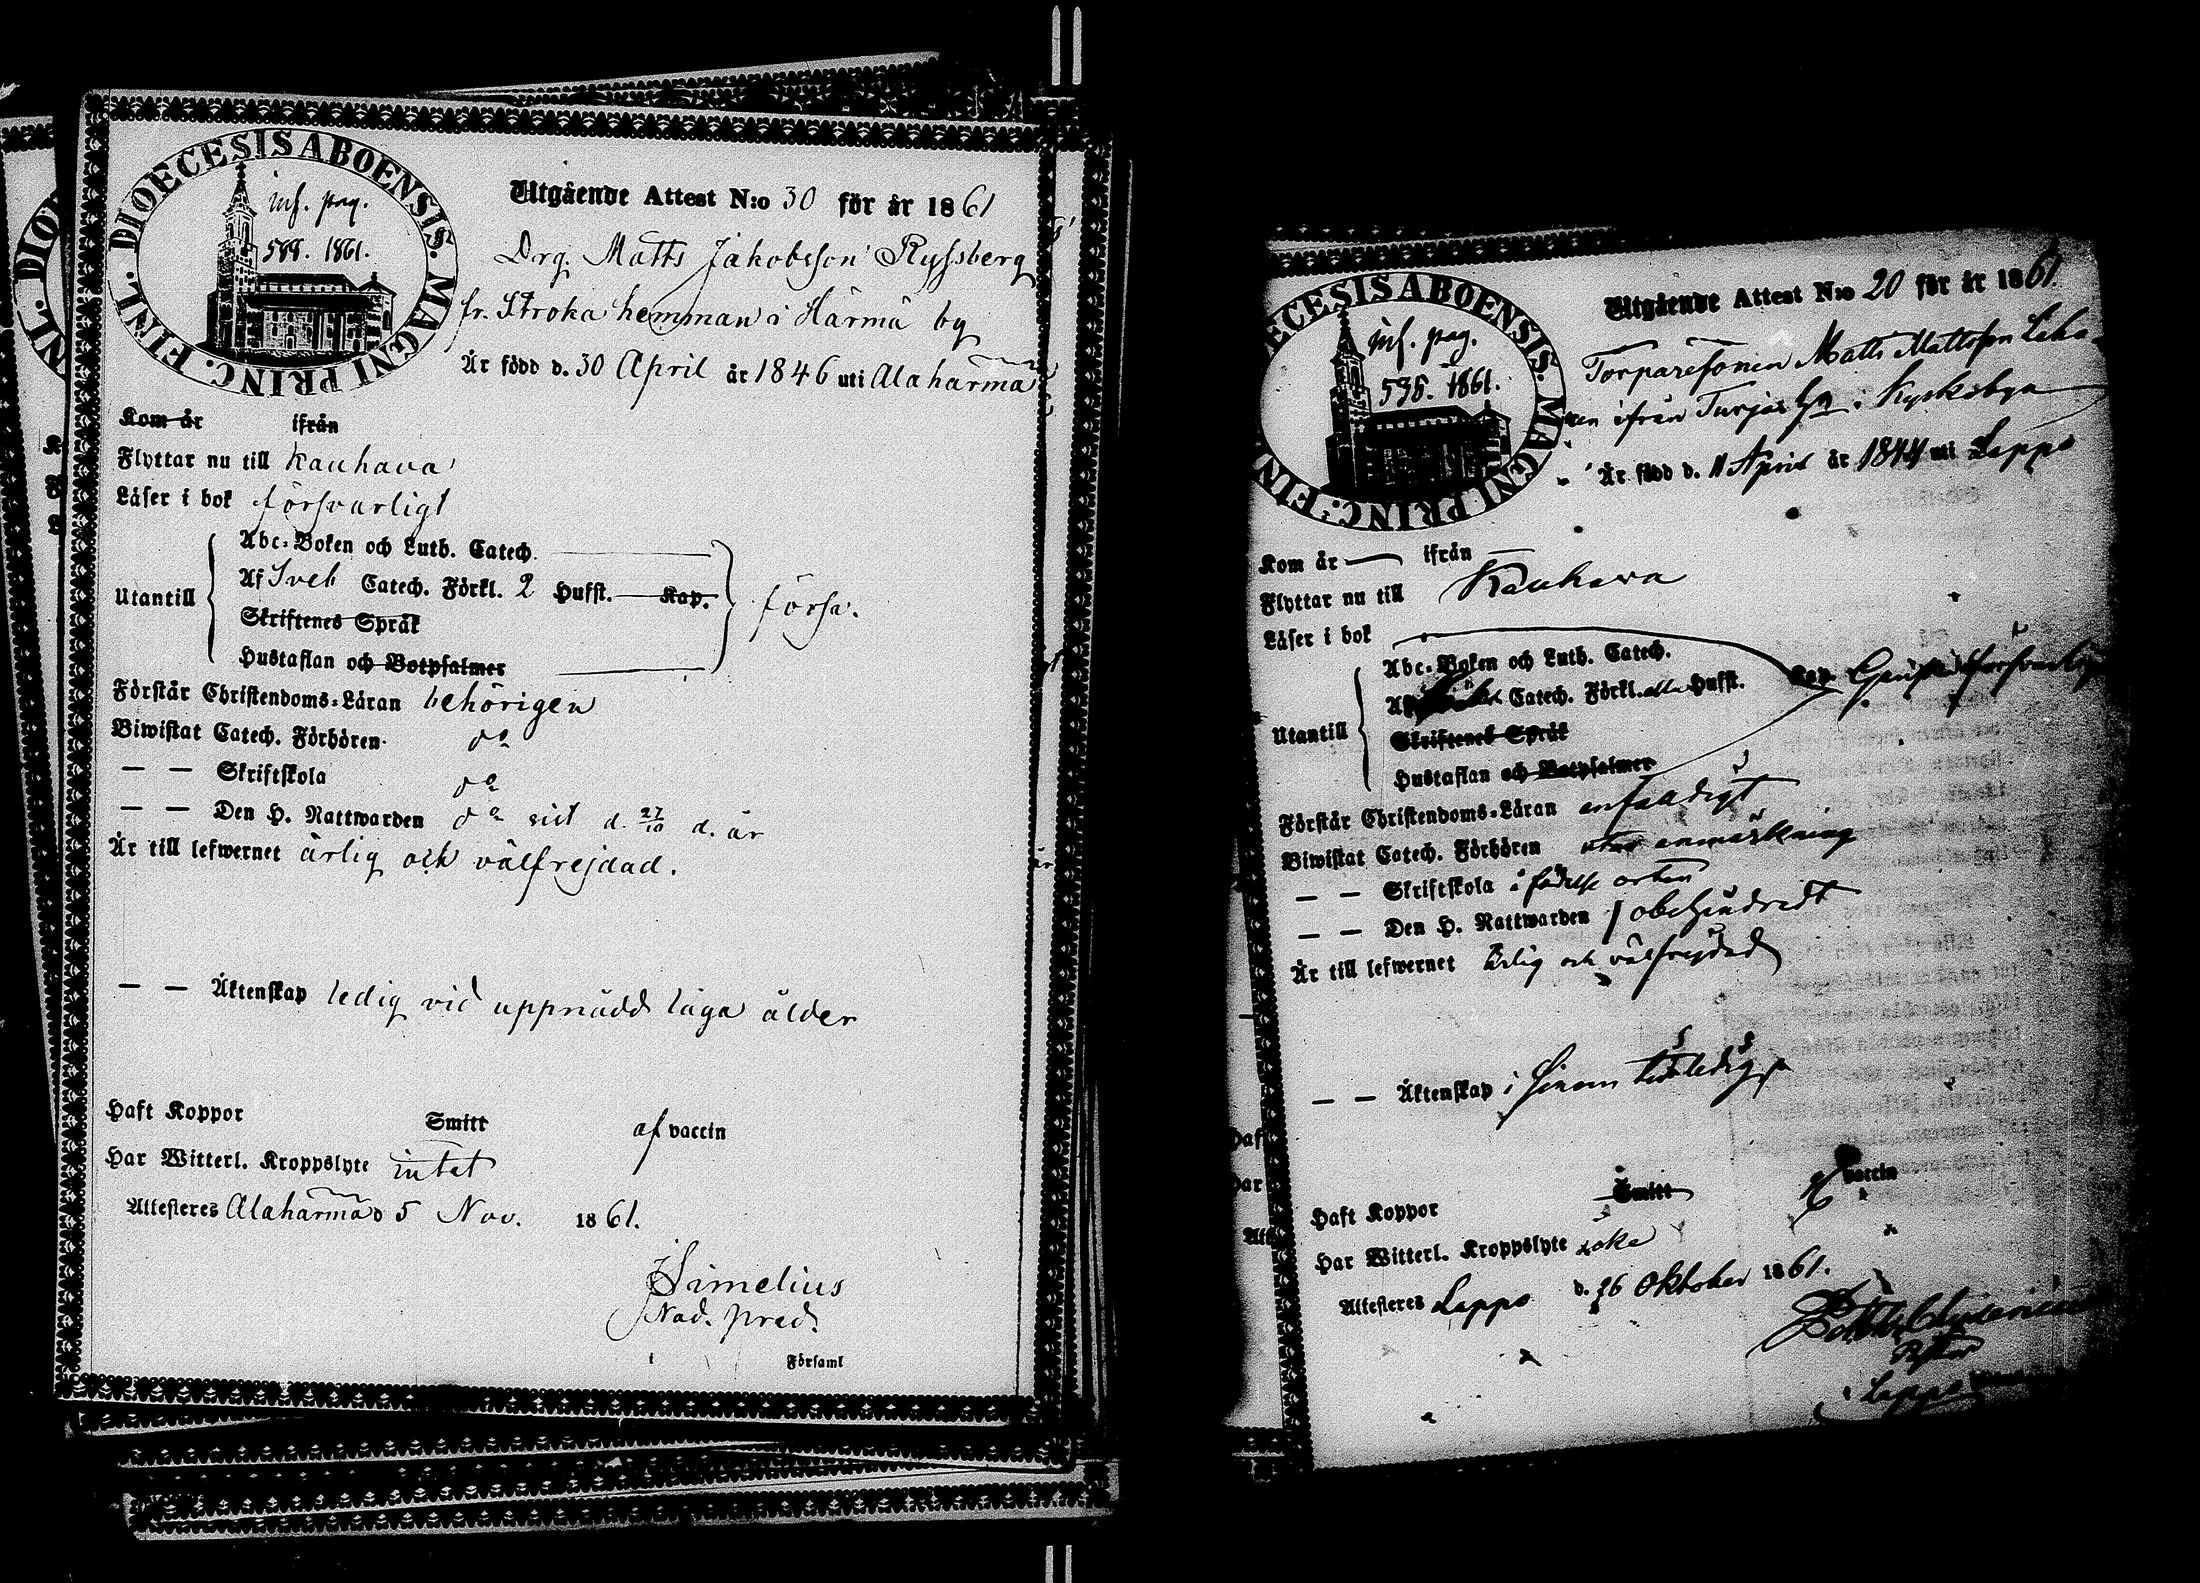 DIOECESIS ABOENSIS. MAGNI PRINC. FINL.
inf. pag.
599. 1861.
Utgående Attest N:o 30 för år 1861
Drg. Matts Jakobsson Ryssberg
fr. Stroka hemman i Härmä by
Är född d. 30 April år 1846 uti Alahärmä
Kom år ifrån
Flyttar nu till Kauhava
Läser i bok försvarligt
Abc-Boken och Luth. Catech.
Utantill Af Sveb Catech. Förkl. 2 Hufst. Kap. försv.
Skriftenes Språk
Hustaflan och Botpsalmer
Förstår Christendoms-Läran behörigen
Biwistat Catech. Förhören do
— — Skriftskola do
— — Den H. Nattwarden do sist d. 27/10 d. år
Är till lefwernet ärlig och välfrejdad.
— — Äktenskap ledig vid uppnådd laga ålder
Haft Koppor Smitt af vaccin
Har Witterl. Kroppslyte intet
Attesteres Alahärmä d 5 Nov. 1861.
Simelius
Nåd. pred.
i Församl
DIOECESIS ABOENSIS. MAGNI PRINC. FIN
inf. pag.
535. 1861.
Utgående Attest N:o 20 för år 1861.
Torparesonen Matts Mattsson
ifrån Turja by i Kyrkobyn
Är född d. 11 April år 1844 uti Lappo
Kom år — ifrån —
Flyttar nu till Kauhava
Läser i bok
Abc-Boken och Luth. Catech.
Utantill Af Catech. Förkl. alla Hufst. Kap. försvarligt
Skriftenes Språk
Hustaflan och Botpsalmer
Förstår Christendoms-Läran enfaldigt
Biwistat Catech. Förhören utan anmärkning
— — Skriftskola i födelse orten
— — Den H. Nattwarden obehindradt
Är till lefwernet ärlig och välfrejdad
— — Äktenskap i
Haft Koppor Smitt af vaccin
Har Witterl. Kroppslyte icke
Attesteres Lappo d. 26 Oktober 1861.
Pastor
i Lappo